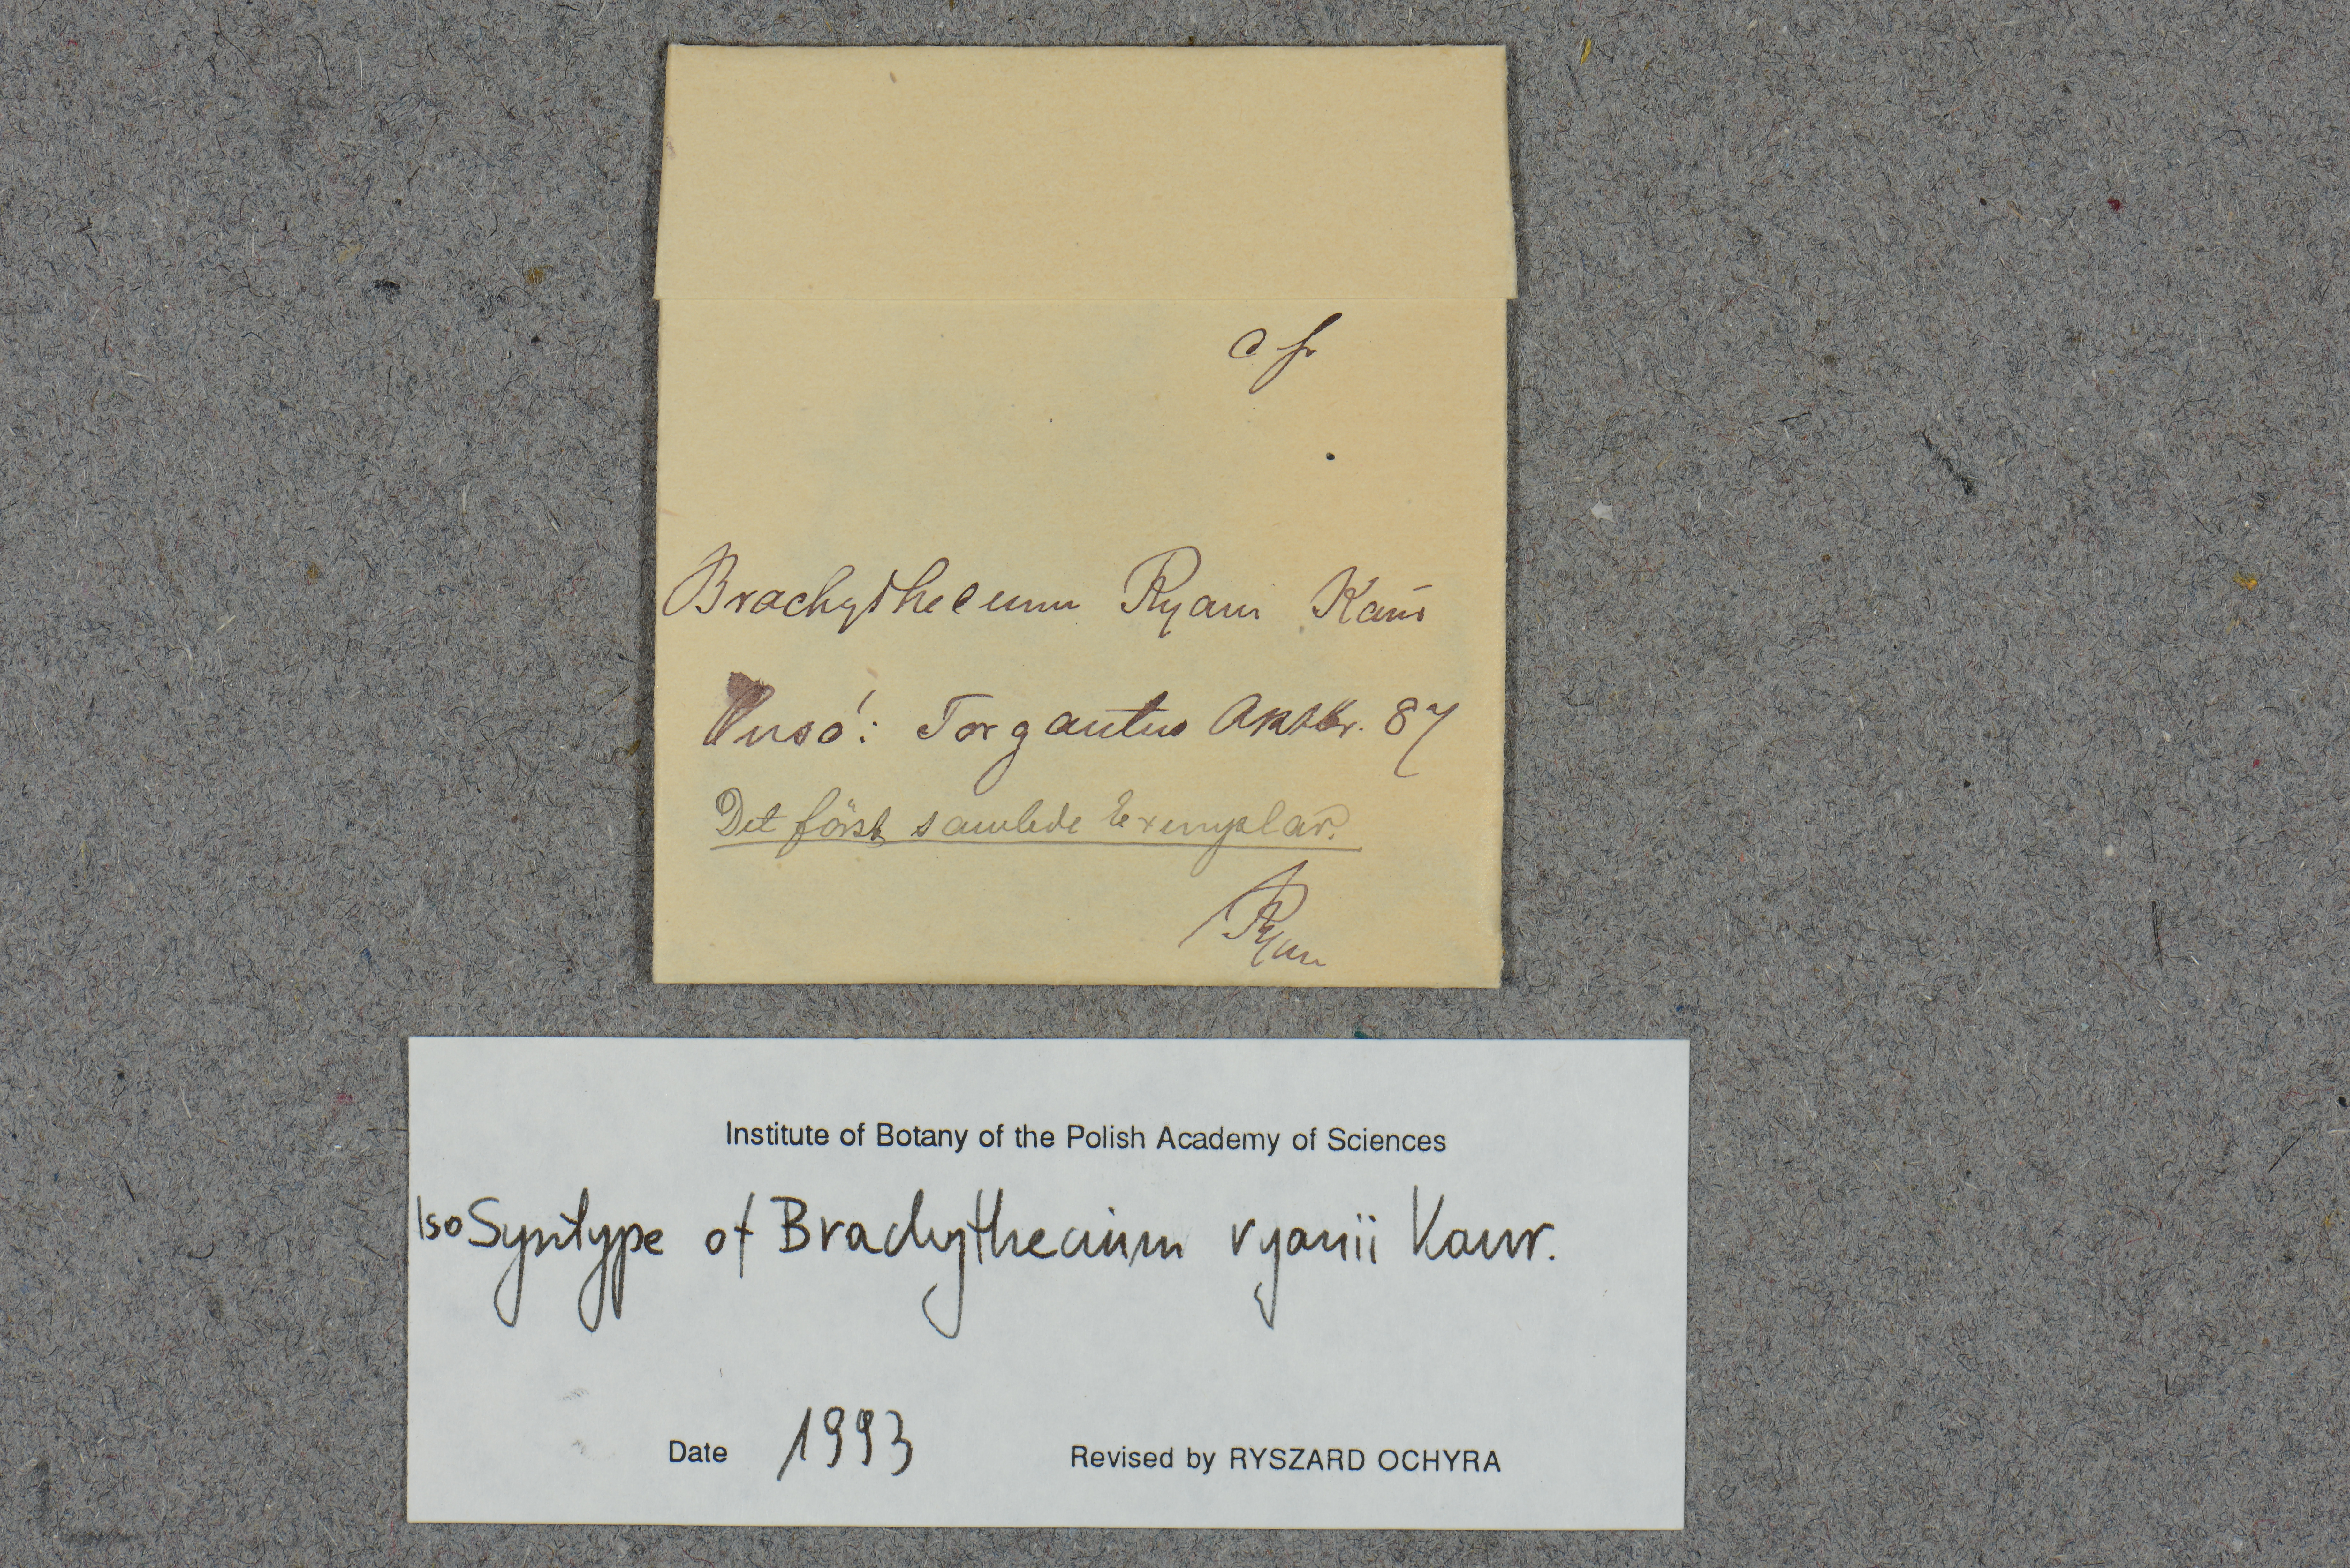 c fr
Brachythecium Ryani Kaur
Det först samlede Exemplar.
Ryan
Institute of Botany of the Polish Academy of Sciences
IsoSyntype of Brachythecium ryanii Kaur.
Date 1993 Revised by RYSZARD OCHYRA